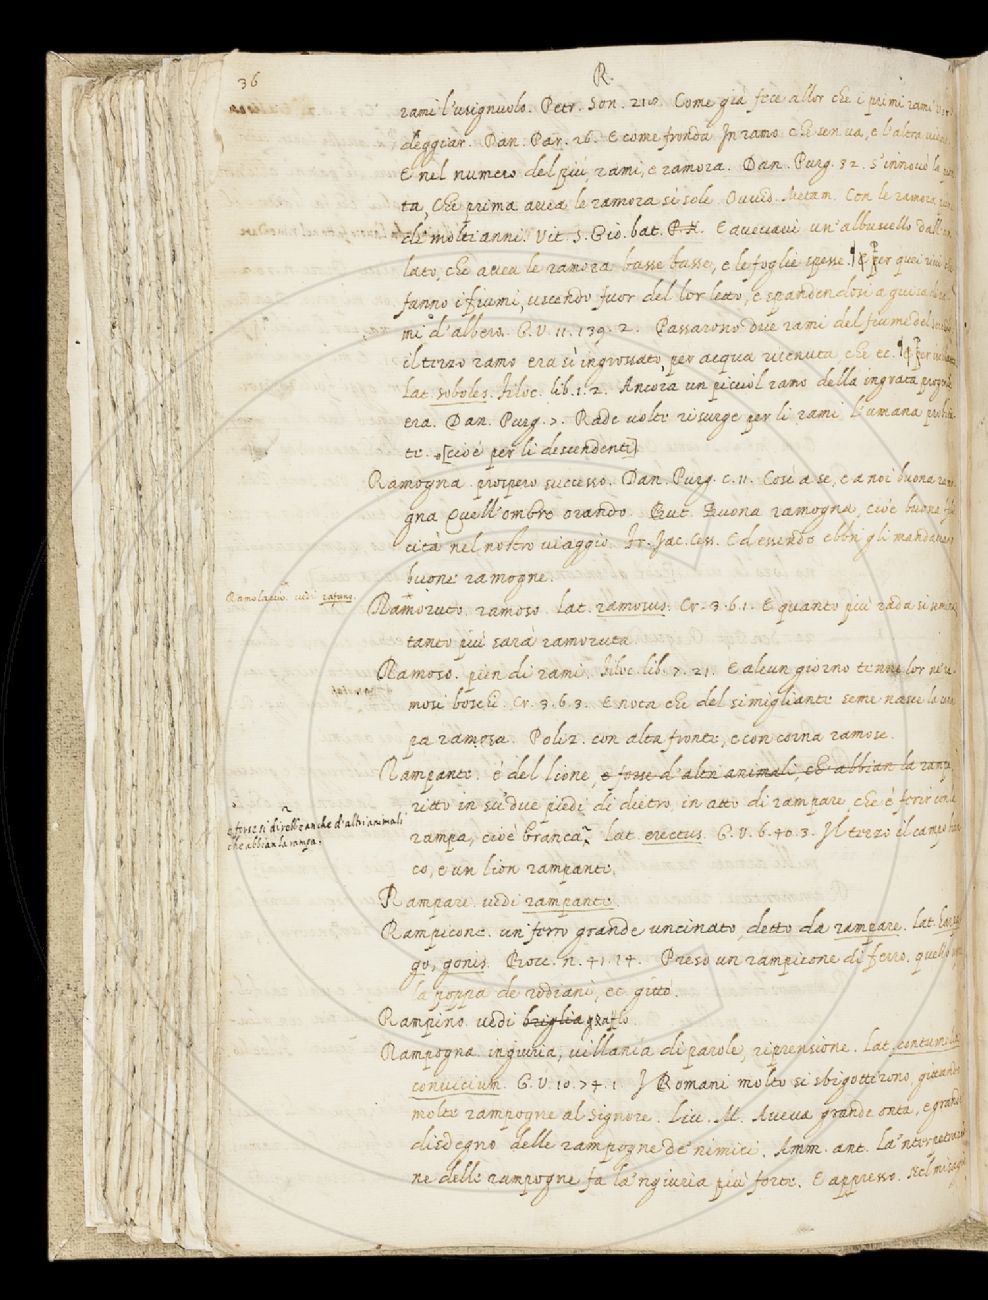 36
R.
rami l'usignuolo. Petr. Son. 218. Come già fece allor che i primi rami ver-
deggiar. Dan. Par. 26. E come fronda In ramo che sen va, e l'altra
E nel numero del piú, rami, e ramora. Dan. Purg. 32. S'innovò la
ta, Che prima avea le ramora sì sole. Ovvid. Metam. Con le ramora
di molti anni. Vit. S. Gio. bat. E aveciavi un' albuscello dall'un
lato, che avea le ramora basse basse, e le foglie spesse. ¶ per quei rivi che
fanno i fiumi, uscendo fuor del lor letto, e spandendosi a guisa di ra-
mi d'albero. G.V. 11. 139. 2. Passarono due rami del fiume del
il terzo ramo era sì ingrossato, per acqua ritenuta che ec. ¶ per
Lat. soboles. Filoc. lib. 1. 2. Ancora un picciol ramo della ingrata progenie
era. Dan. Purg. 7. Rade volte risurge per li rami L'umana probita-
te. [cioè per li descendenti]
Ramogna. prospero successo. Dan. Purg. c. 11. Così a se, e a noi buona ramo-
gna Quell'ombre orando. But. Buona ramogna, cioè buona feli-
cità nel nostro viaggio. Fr. Jac. Cess. Ed essendo ebbri gli mandavano
buone ramogne.
Ramolaccio. vedi rafano.
Ramoruto. ramoso. Lat. ramosus. Cr. 3. 6. 1. E quanto piú rada si semina
tanto piú sarà ramoruta.
Ramoso. pien di rami. Filoc. lib. 7. 21. E alcun giorno tenne lor ne' ra-
mosi boschi. Cr. 3. 6. 3. E nota che del simigliante seme nasce la
pa ramosa. Poliz. con alta fronte, e con corna ramose.
Rampante. è del lione, e forse d'altri animali, ch' abbian la rampa
ritto in su' due piedi di dietro, in atto di rampare, che è ferir con la
e forse si direbbe anche d'altri animali
che abbian la rampa.
rampa, cioè branca. Lat. erectus. G.V. 6. 40. 3. Il terzo il campo bian-
co, e un lion rampante.
Rampare. vedi rampante.
Rampicone. un ferro grande uncinato, detto da rampare. Lat. harpa-
go, gonis. Bocc. n. 41. 14. Preso un rampicone di ferro, quello
la poppa de' rodiani, ec. gittò.
Rampino. vedi briglia
Rampogna. ingiuria, villania di parole, riprensione. Lat. contumelia
convicium. G.V. 10. 74. 1. I Romani molto si sbigottirono, gittando
molte rampogne al Signore. Liv. M. Aveva grande onta, e grande
disdegno delle rampogne de' nimici. Amm. ant. La 'nterpetrazio-
ne delle rampogne fa la 'ngiuria piú forte. E appresso.